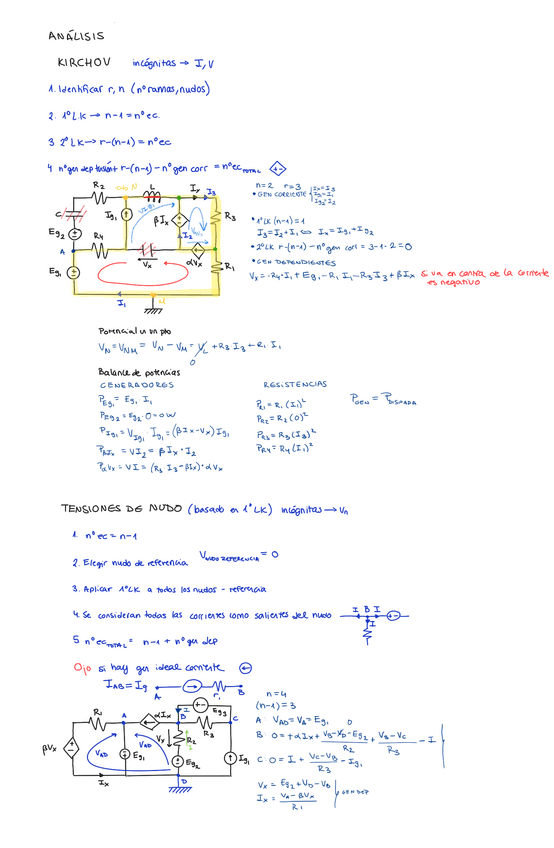 ANÁLISIS
KIRCHOV incógnitas → I, V
1. Identificar r, n (nº ramas, nudos)
2. 1º LK → n-1 = nº ec.
3 2º LK → r-(n-1) = nº ec
4 nº gen dep tensión + r-(n-1) - nº gen corr = nº ec TOTAL
n=2 r=3
• GEN CORRIENTE
Ix=I3
R2
L
Iy
I3
C
Ig1
βIx
R3
Eg2
I2
A
R4
Vx
αVx
R1
Eg1
I1
• 1º LK (n-1)=1
I3=I2+I1 ⇔ Ix=Ig1+Ig2
• 2º LK r-(n-1) - nº gen corr = 3-1-2=0
• GEN DEPENDIENTES
Vx = -R4·I1 + Eg1 - R1 I1 - R3 I3 + βIx
si va en contra de la corriente
es negativo
Potencial en un pto
VN = VNM = VN - VM = VL + R3 I3 + R1 I1
0
Balance de potencias
GENERADORES
RESISTENCIAS
PEg1 = Eg1 I1
PEg2 = Eg2·0 = 0W
PIg1 = VIg1 Ig1 = (βIx-Vx) Ig1
PβIx = VI2 = βIx·I2
PαVx = VI = (R3 I3 - βIx)·αVx
PR1 = R1(I1)²
PR2 = R2(0)²
PR3 = R3(I3)²
PR4 = R4(I1)²
PGEN = PDISIPADA
TENSIONES DE NUDO (basado en 1º LK) incógnitas → Vn
1. nº ec = n-1
2. Elegir nudo de referencia VNUDO REFERENCIA = 0
3. Aplicar 1º LK a todos los nudos - referencia
4. Se consideran todas las corrientes como salientes del nudo
I B I
I
5 nº ec TOTAL = n-1 + nº gen dep
Ojo si hay gen ideal corriente
IAB = Ig
A
r1
B
n=4
(n-1)=3
A VAD = VA = Eg1
B 0 = +αIx + VB-VD-Eg2/R2 + VB-VC/R3 - I
0
C 0 = I + VC-VB/R3 - Ig1
Vx = Eg2 + VD - VB
Ix = VA-βVx/R1
GEN DEP
R1
A
αIx
B
I
Eg3
R3
C
βVx
VAD
VAD
Eg1
Vx
R2
Eg2
Ig1
Ix
D